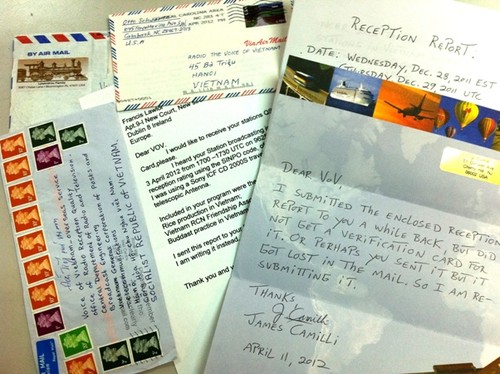 BY AIR MAIL
U.S.A
Via Air Mail
RADIO THE VOICE OF VIETNAM
45 BÀ TRIỆU
HANOI
VIETNAM
Voice of Vietnam, Overseas Service
Office of Radio Reception
Central Department of Radio and
Broadcast Engineering
SOCIALIST REPUBLIC OF VIETNAM.
Francis
Apt.9-I New Court, New
Dublin 8 Ireland
Europe.
Dear VOV,
I would like to receive your stations
Card,please.
I heard your Station broadcasting
3 April 2012 from 1700 –1730 UTC on
reception rating using the SINPO code, of
I was using a Sony ICF CD 2000S
telescopic Antenna.
Included in your program were the
Rice production in Vietnam,
Vietnam RCN Friendship
Buddast practice in Vietnam
I sent this report to your
I am writing it instead
Thank you and
RECEPTION REPORT.
DATE: WEDNESDAY, DEC. 28, 2011 EST
THURSDAY DEC. 29, 2011 UTC
DEAR VOV,
I SUBMITTED THE ENCLOSED RECEPTION
REPORT TO YOU A WHILE BACK, BUT DID
NOT GET A VERIFICATION CARD FOR
IT. OR PERHAPS YOU SENT IT BUT IT
GOT LOST IN THE MAIL. SO I AM RE-
SUBMITTING IT.
THANKS
J. Camilli
JAMES CAMILLI
APRIL 11, 2012